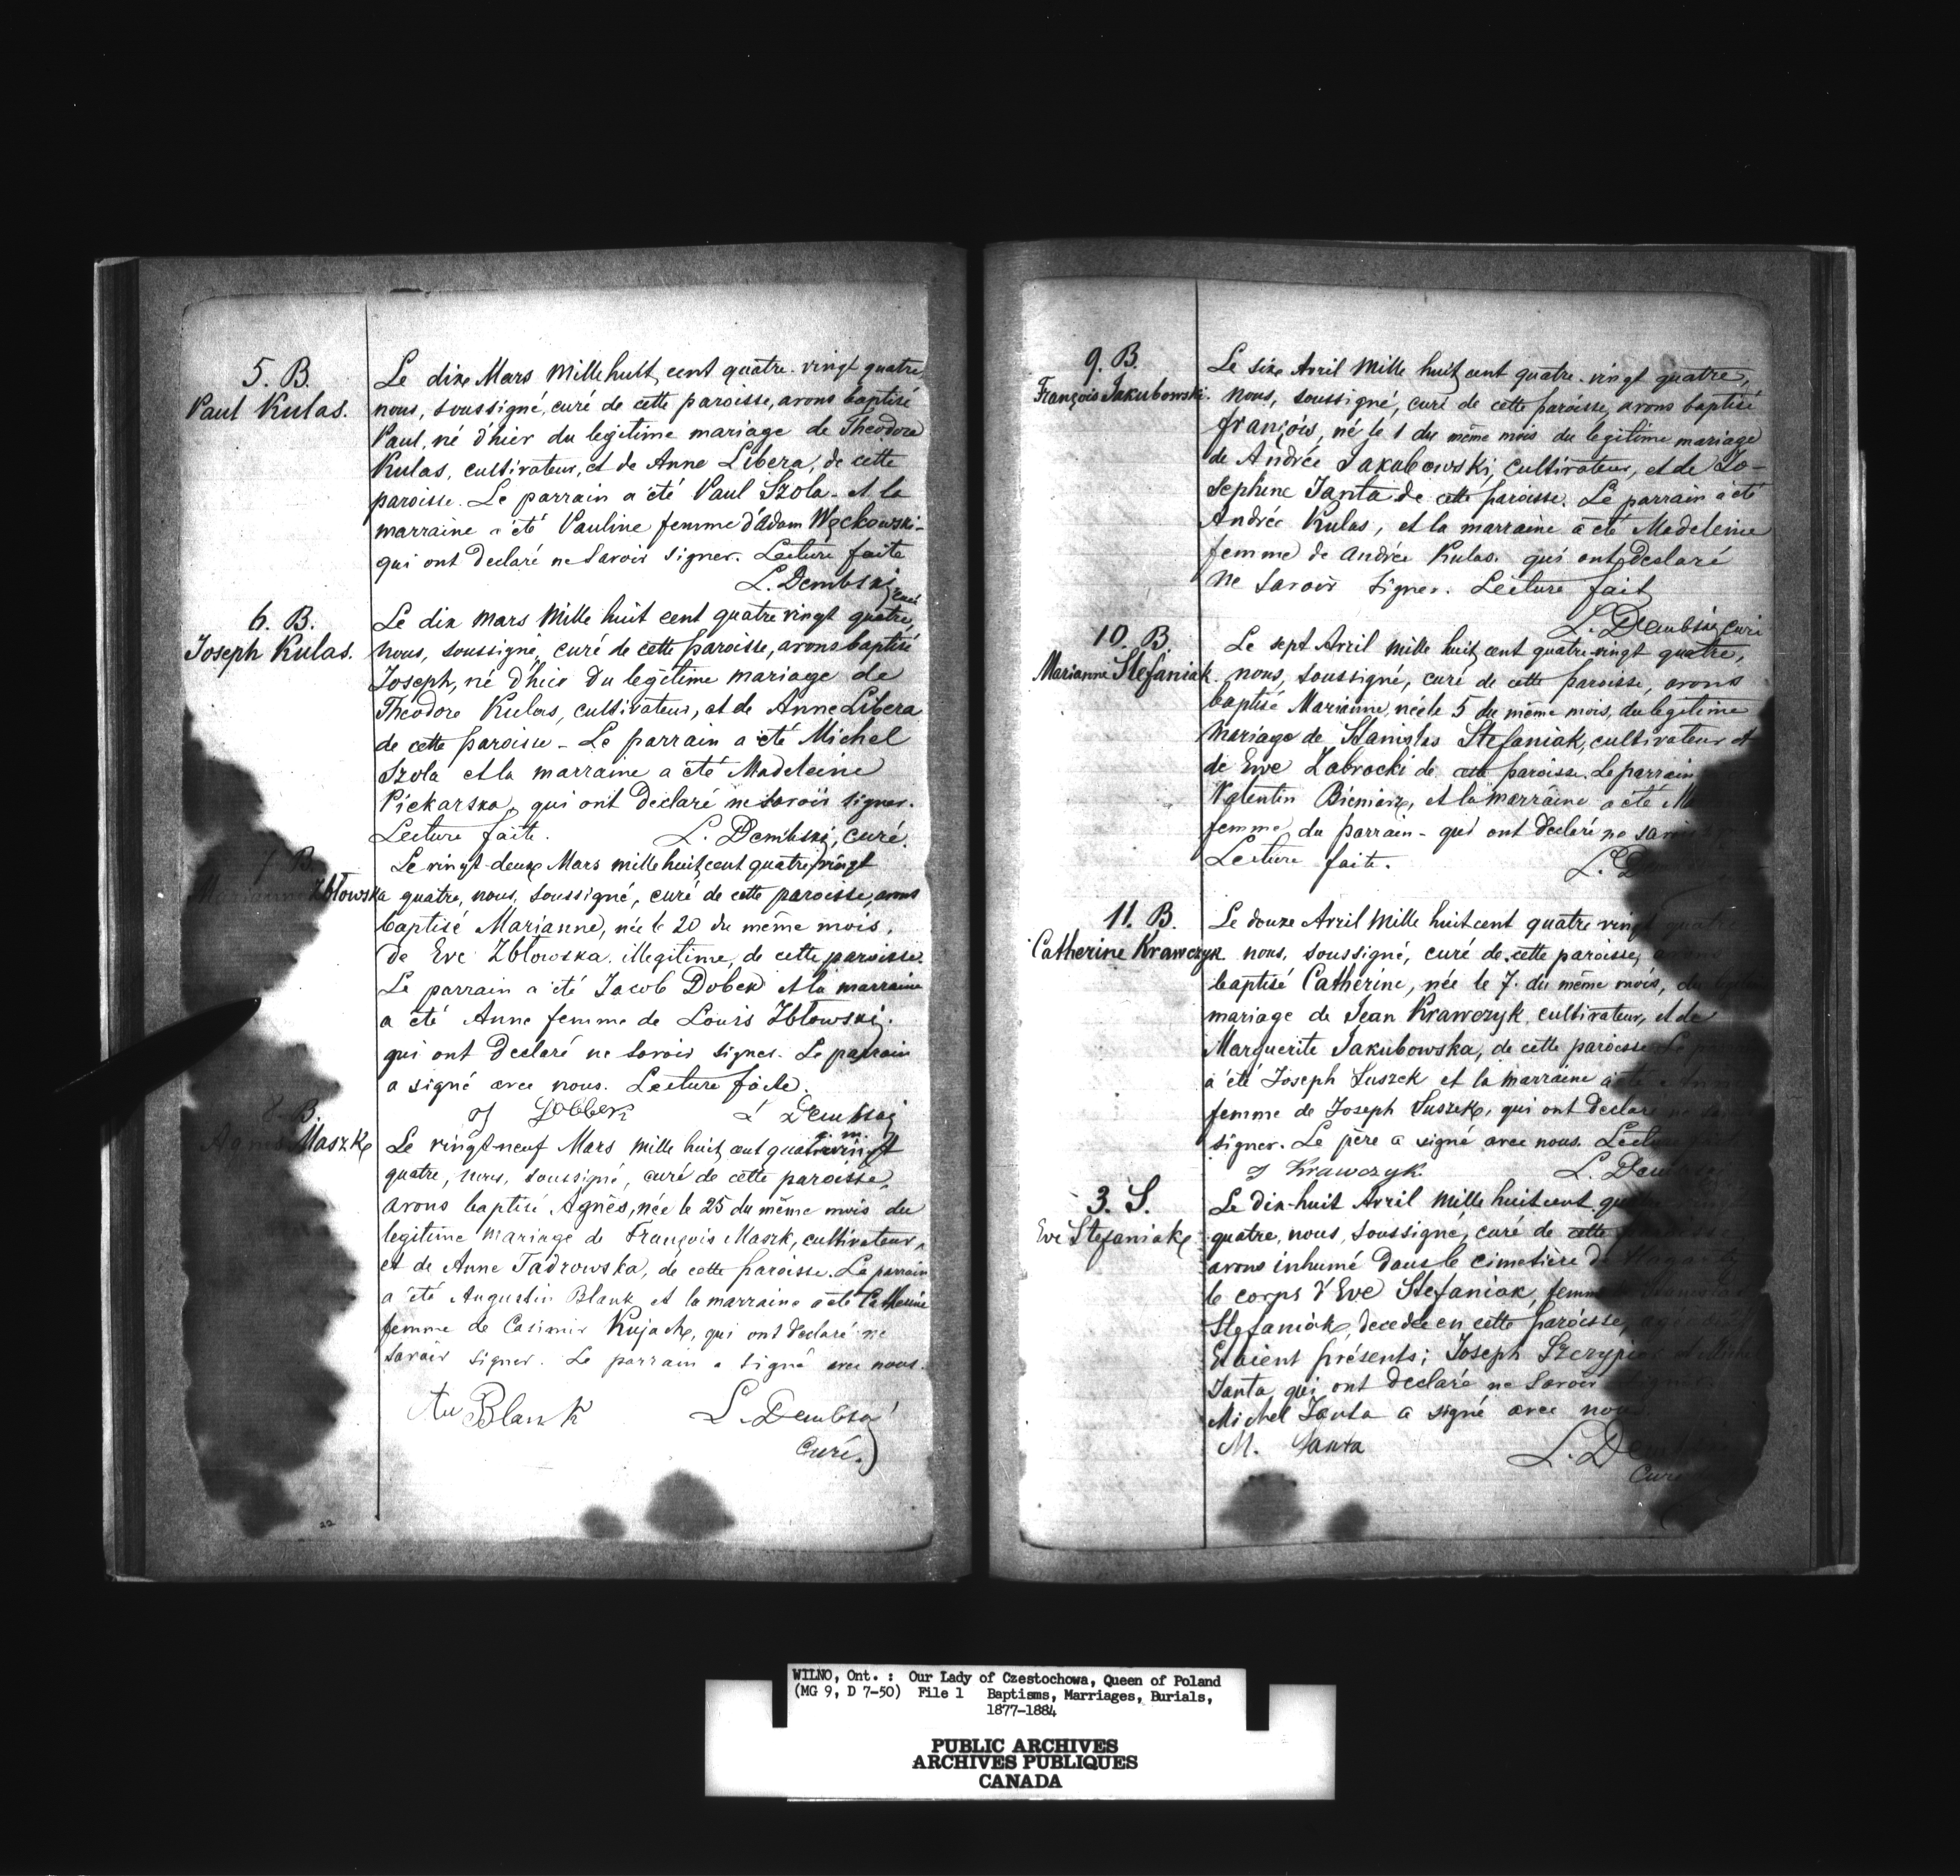 5. B.
Paul Kulas.
Le dix Mars Mille huit cent quatre-vingt quatre
nous, soussigné, curé de cette paroisse, avons baptisé
Paul, né d'hier du legitime mariage de Théodore
Kulas, cultivateur, et de Anne Libera, de cette
paroisse. Le parrain a été Paul Szola. et la
marraine a été Pauline femme d'Adam Węckowski-
qui ont declaré ne savoir signer. Lecture faite
L. Dembski, curé
6. B.
Joseph Kulas.
Le dix mars Mille huit cent quatre vingt quatre,
nous, soussigné, curé de cette paroisse, avons baptisé
Joseph, né d'hier du legitime mariage de
Theodore Kulas, cultivateur, et de Anne Libera
de cette paroisse - Le parrain a été Michel
Szola et la marraine a été Madeleine
Piekarska, qui ont declaré ne savoir signer.
Lecture faite. L. Dembski, curé.
7. B.
Marianne Zbłowska
Le vingt-deux Mars mille huit cent quatre vingt
quatre, nous, soussigné, curé de cette paroisse, avons
baptisé Marianne, née le 20 du même mois,
de Eve Zblowska. illegitime, de cette paroisse.
Le parrain a été Jacob Dobek et la marraine
a été Anne femme de Louis Zbłowski.
qui ont declaré ne savoir signer. Le parrain
a signé avec nous. Lecture faite.
J Dobbek L Dembski
8. B.
Agnes Maszk
Le vingt-neuf Mars mille huit cent quatrevingt
quatre, nous, soussigné, curé de cette paroisse,
avons baptisé Agnès, née le 25 du même mois du
legitime mariage de François Maszk, cultivateur,
et de Anne Jadrowska, de cette paroisse. Le parrain
a été Augustin Blank et la marraine a été Catherine
femme de Casimir Kujach, qui ont declaré ne
savoir signer. Le parrain a signé avec nous.
Au Blank L. Dembski
Curé.
22
9. B.
François Jakubowski.
Le six Avril Mille huit cent quatre-vingt quatre,
nous, soussigné, curé de cette paroisse, avons baptisé
François, né le 1 du même mois du legitime mariage
de Andrée Jakubowski, cultivateur, et de Jo-
sephine Janta de cette paroisse. Le parrain a été
Andrée Kulas, et la marraine a été Madeleine
femme de Andrée Kulas. qui ont declaré
ne savoir signer. Lecture fait
L. Dembski, curé
10. B.
Marianne Stefaniak.
Le sept Avril mille huit cent quatre-vingt quatre,
nous, soussigné, curé de cette paroisse, avons
baptisé Marianne, née le 5 du même mois, du legitime
mariage de Stanislas Stefaniak, cultivateur et
de Eve Zabrocki de cette paroisse. Le parrain
Valentin Bieniarz, et la marraine a été
femme du parrain - qui ont declaré ne
Lecture faite. L. D
11. B.
Catherine Krawczyk
Le douze Avril Mille huit cent quatre vingt quatre
nous, soussigné, curé de cette paroisse, avons
baptisé Catherine, née le 7. du même mois, du
mariage de Jean Krawczyk, cultivateur, et de
Marguerite Jakubowska, de cette paroisse. Le
a été Joseph Suszek et la marraine a été
femme de Joseph Suszek, qui ont declaré ne
signer. Le père a signé avec nous. Lecture
J Krawczyk. L. Dembski
3. S.
Eve Stefaniak
Le dix-huit Avril Mille huit cent
quatre, nous, soussigné, curé de cette paroisse
avons inhumé dans le cimetière de Hagarty
le corps d'Eve Stefaniak, femme de Stanislas
Stefaniak, decedée en cette paroisse,
Etaient présents; Joseph Szczypior et Michel
Janta, qui ont declaré ne savoir signer.
Michel Janta a signé avec nous.
M. Janta L. Dembski
Curé
WILNO, Ont. : Our Lady of Czestochowa, Queen of Poland
(MG 9, D 7-50) File 1 Baptisms, Marriages, Burials,
1877-1884
PUBLIC ARCHIVES
ARCHIVES PUBLIQUES
CANADA